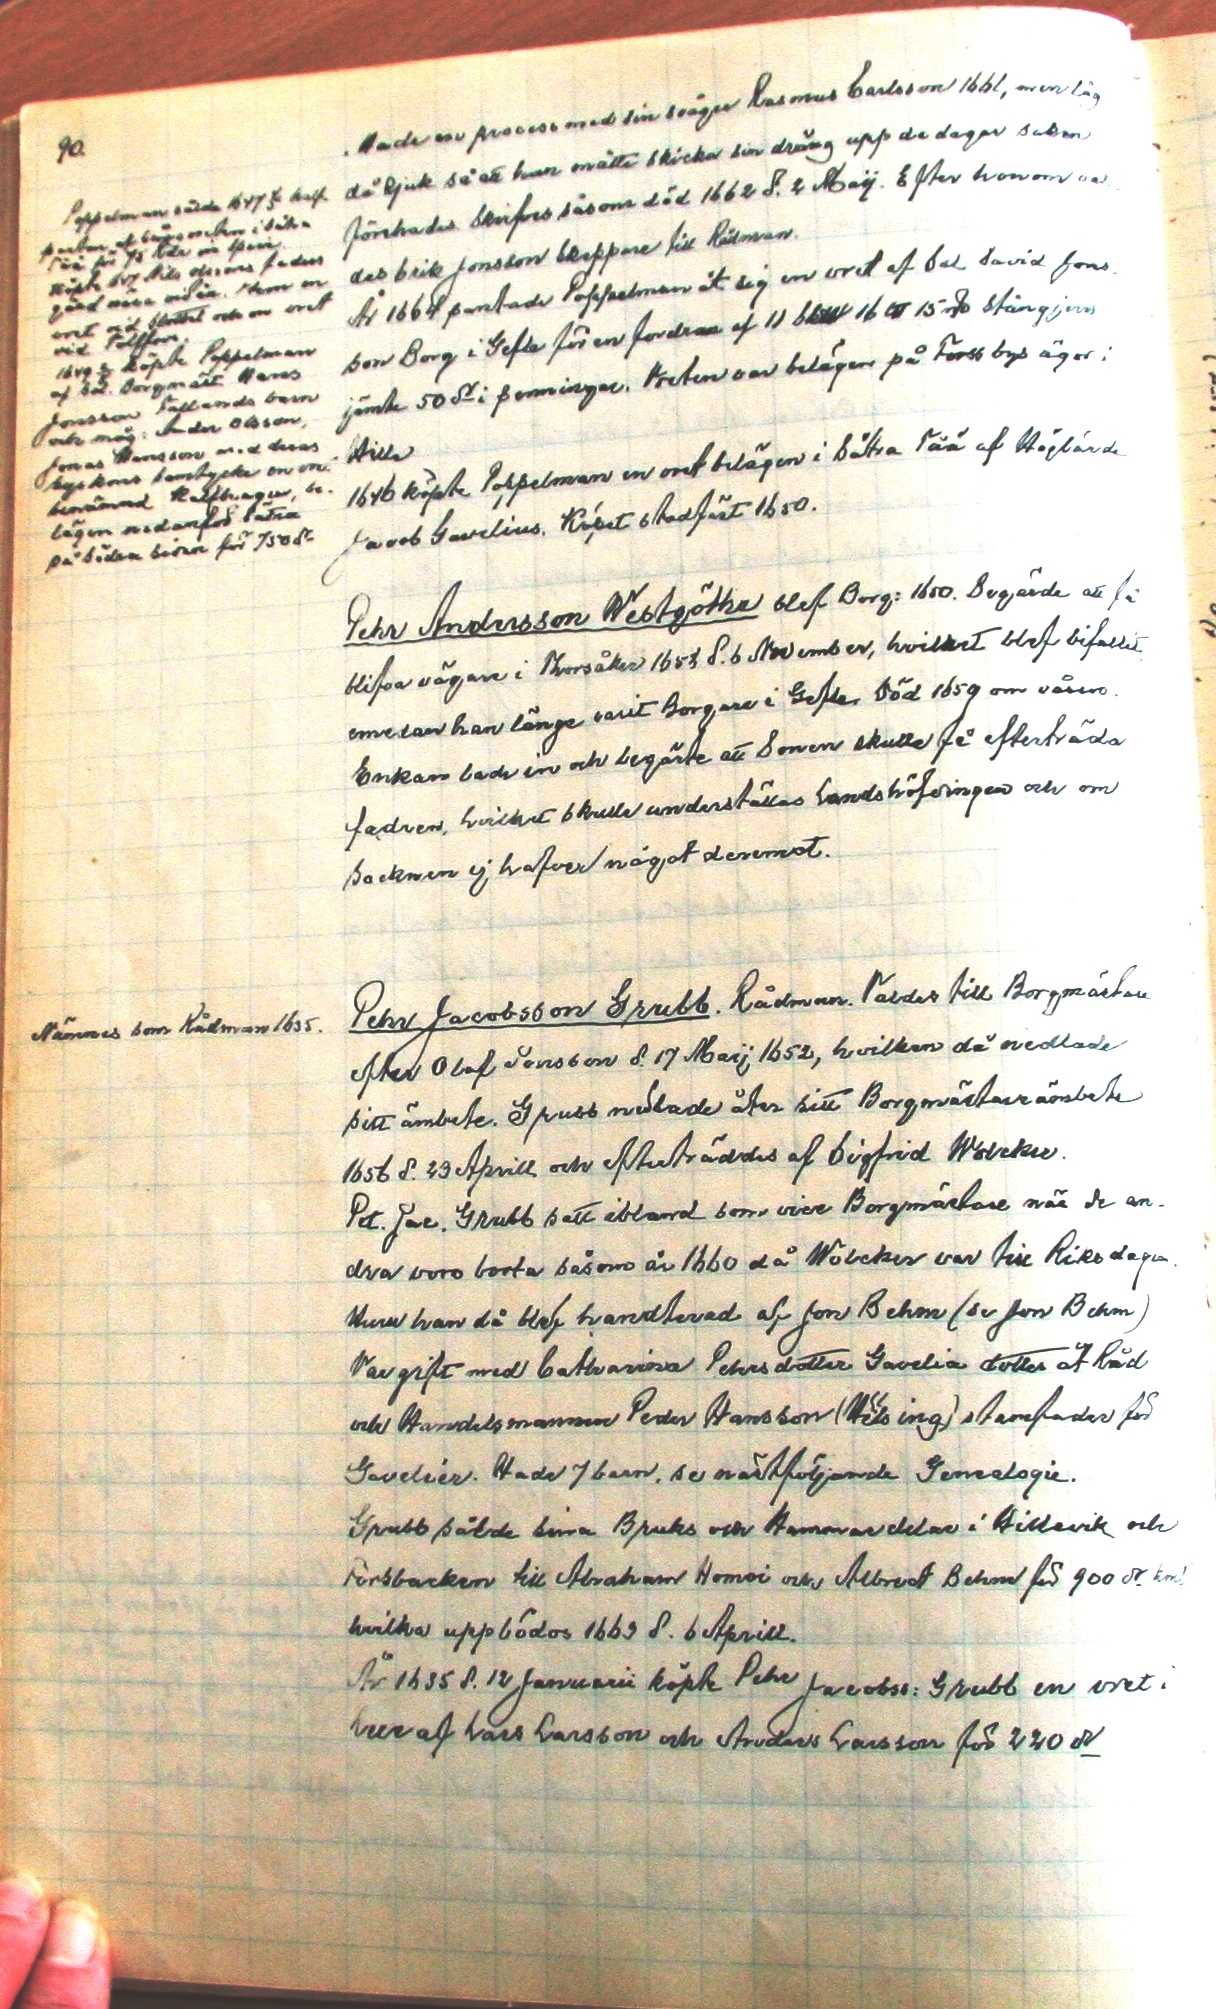 90.
Hade en process med sin svåger Rasmus Carlsson 1661, men låg
då sjuk så att han måtte skicka sin dräng upp de dagar saken
förehades. Skrifves såsom död 1662 d. 2 Maij. Efter honom val
des Erik Jonsson Skeppare till Rådman.
År 1664 pantade Poppelman åt sig en vret af Sal David Jons
son Borg i Gefle för en fordran af 11 16 15 Stångjern
jämte 50 dr i penningar. Vreten var belägen på Forss bys ägor i
Hille
1646 köpte Poppelman en vret belägen i Sätra Tää af Höglärde
Jacob Gavelius. Köpet stadfäst 1650.
Poppelman sålde 1647
Tää för 75
köpte 647 Nils Olssons faders
gård
vret vid Slottet och en vret
vid
1649 köpte Poppelman
af Sal. Borgmäst. Hans
Jonsson barn
och måg: Ander Olsson,
Jonas Hansson med deras
syskons samtycke en vr.
benämnd be-
lägen nedanför Sätra
på södra sidan för 750 dr
Pehr Andersson Westgöthe blef Borg: 1650. Begärde att få
blifva vågare i Thorsåker 1654 d. 6 November, hvilket blef bifallit
emedan han länge varit Borgare i Gefle. Död 1659 om våren.
Enkan bade in och begärte att Sonen skulle få efterträda
fadren, hvilket skulle underställas Landshöfdingen och om
Socknen ej hafver något deremot.
Nämnes som Rådman 1635.
Pehr Jacobsson Grubb. Rådman. Valdes till Borgmästare
efter Olof Jonsson d. 17 Maij 1652, hvilken då nedlade
sitt ämbete. Grubb nedlade åter sitt Borgmästareämbete
1656 d. 29 Aprill och efterträddes af Sigfrid Wölcker.
Pet. Jac. Grubb satt ibland som vice Borgmästare när de an-
dra voro borta såsom år 1660 då Wölcker var till Riksdagen.
Huru han då blef handterad af Jon Behm (se Jon Behm)
Var gift med Catharina Pehrsdotter Gavelia dotter åt Råd
och Handelsmannen Peder Hansson (Helsing) stamfader för
Gavelier. Hade 7 barn, se nästföljande Genealogie.
Grubb sålde sina Bruks och Hammardelar i Hillevik och
Forsbacken till Abraham Momoi och Albrect Behm för 900 dr kmt
hvilka uppbödos 1663 d. 6 Aprill.
År 1635 d. 12 Januarii köpte Pehr Jacobss: Grubb en vret i
af Lars Larsson och Anders Larsson för 220 dr